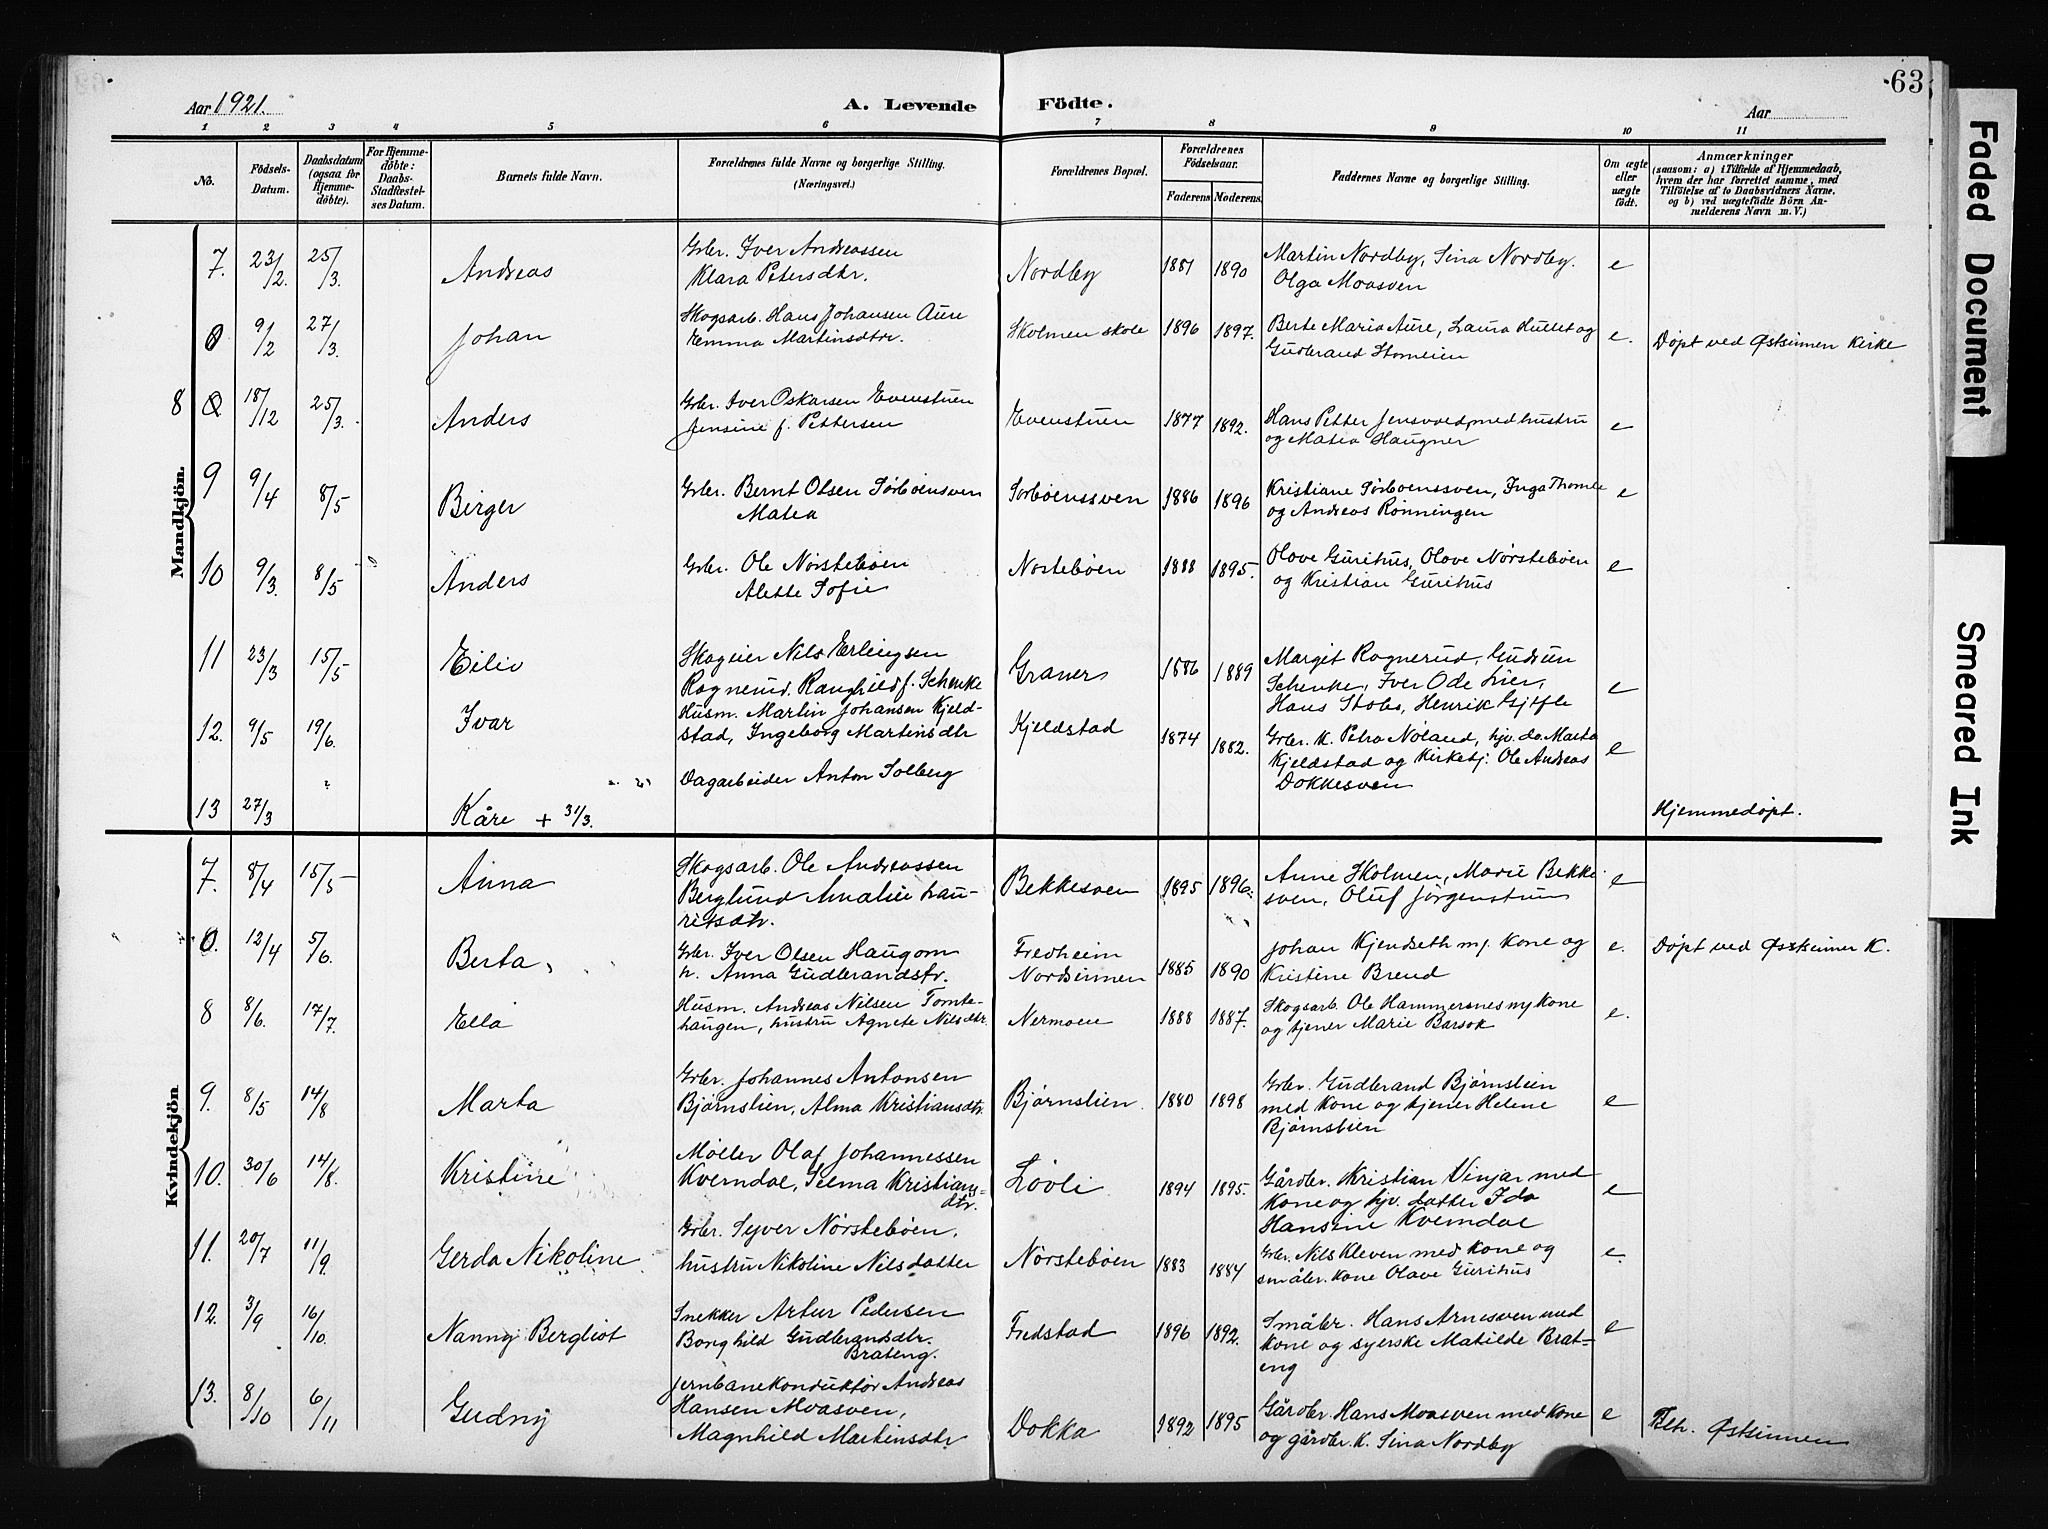 63
Aar 1921.
A. Levende Födte.
Aar
1 2 3 4 5 6 7 8 9 10 11
No.
Födsels-
Datum.
Daabsdatum
(ogsaa for
Hjemme-
döbte).
For Hjemme-
döbte:
Daabs-
Stadfæstel-
ses Datum.
Barnets fulde Navn.
Forældrenes fulde Navne og borgerlige Stilling.
(Næringsvei.)
Forældrenes Bopæl.
Forældrenes
Födselsaar.
Faderens Moderens.
Faddernes Navne og borgerlige Stilling.
Om ægte
eller
uægte
födt.
Anmærkninger
(saasom: a) i Tilfælde af Hjemmedaab,
hvem der har forrettet samme, med
Tilföielse af to Daabsvidners Navne,
og b) ved uægtefödte Börn An-
melderens Navn m. V.)
Mandkjön.
7. 23/2. 25/3. Andreas
Grbr. Iver Andreassen
Klara Petersdtr.
Nordby 1881 1890
Martin Nordby, Sina Nordby.
Olga Moasven
e
0 9/2 27/3. Johan
Skogsarb. Hans Johansen Aure
Emma Martinsdtr.
Skolmen skole 1896 1897.
Berte Maria Aure, Laura Hullet og
Gudbrand Stomeien
e. Døpt ved Østsinnen Kirke
8 0 18/12 25/3. Anders
Grbr. Iver Oskarsen Evenstuen
Jensine f. Pettersen
Evenstuen 1877 1892.
Hans Petter Jensvold, med hustru
og Matea Haugner
e
9 9/4 8/5 Birger
Grbr. Bernt Olsen Sørboensven
Matea
Sørboenssven 1886 1896
Kristiane Sørboenssven, Inga Thomle
og Andreas Rønningen
e
10 9/3. 8/5 Anders
Grbr. Ole Nørstebøen
Alette Sofie
Nørstebøen 1888 1895.
Olave Gurihus, Olave Nørstebøen
og Kristian Gurihus
e
11 23/3 15/5 Eiliv
Skogeier Nils Erlingsen
Rognerud. Ranghild f. Schenke
Graners 1886 1889
Margit Rognerud, Gudrun
Schenke, Iver Ode Lier,
Hans Stabo, Henrik Gjefle
e
12. 9/5 19/6. Ivar
Husm. Martin Johansen Kjeld-
stad, Ingeborg Martinsdtr
Kjeldstad 1874 1882.
Grbr. K. Petra Nøland, hjv. do. Marta
Kjeldstad og Kirketj. Ole Andreas
Dokkesven
e
13 27/3 Kåre + 31/3.
Dagarbeider Anton Solberg
Hjemmedøpt.
Kvindekjön
7. 8/4 15/5 Anna
Skogsarb. Ole Andreassen
Berglund Amalie Lau-
ritsdtr.
Bekkesven 1895 1896.
Anne Skolmen, Marie Bekke
sven, Oluf Jørgenstuen
e
0. 12/4 5/6. Berta
Grbr. Iver Olsen Haugom
h. Anna Gudbrandsdtr.
Fredheim
Nordsinnen
1885 1890
Johan Kjendseth m/ kone og
Kristine Brend
e. Døpt ved Østsinnen K.
8 8/6. 17/7. Ella
Husm. Andreas Nilsen Tomte-
haugen, hustru Agnete Nilsdtr.
Nermoen 1888 1887.
Skogsarb. Ole Hammersnes m/ kone
og tjener Marie Barsok
e.
9. 8/5 14/8 Marta
Grbr. Johannes Antonsen
Bjørnslien, Alma Kristiansdtr.
Bjørnslien. 1880 1898
Grbr. Gudbrand Bjørnslien
med kone og tjener Helene
Bjørnslien
e
10. 30/6 14/8. Kristine
Møller Olaf Johannessen
Kverndal, Selma Kristians-
dtr.
Løvli 1894 1895.
Gårdbr. Kristian Vinjar med
kone og hjv. datter Ida
Hansine Kverndal
e
11. 20/7 11/9. Gerda Nikoline
Grbr. Syver Nørstebøen.
hustru Nikoline Nilsdatter
Nørstebøen 1883 1884
Grbr. Nils Kleven med kone og
småbr. kone Olave Gurihus
e.
12. 3/9 16/10. Nanny Bergliot
Snekker Artur Pedersen
Borghild Gudbrandsdtr.
Brateng.
Fredstad 1896 1892.
Småbr. Hans Arnesven med
kone og syerske Matilde Brat-
eng
e
13. 8/10 6/11 Gudny
Jernbanekonduktør Andreas
Hansen Moasven,
Magnhild Martinsdtr
Dokka 1892 1895
Gårdbr. Hans Moasven med kone
og gårdbr. K. Sina Nordby
e Østsinnen
Faded Document
Smeared Ink